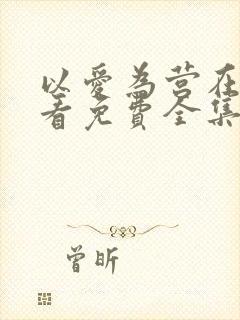 以爱为营在
看免费全集
曾昕